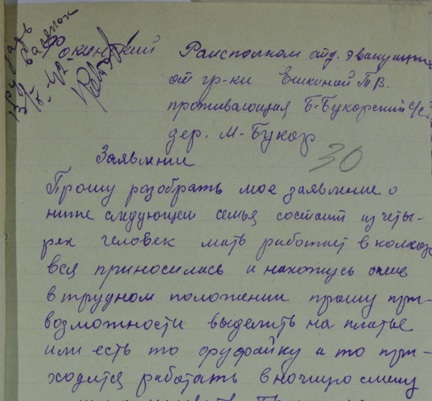 Фокинский Райисполком отд. эвакуации
от гр-ки Ешкиной Т.В.
проживающая Б-Букорский с/с
дер. М-Букор
30
Заявление
Прошу разобрать мое заявление о
ниже следующем семья состоит из четы-
рех человек мать работает в колхозе
вся приносилась и нахожусь
в трудном положении прошу при-
возможности выделить на платье
или есть то фуфайку а то при-
ходится работать в ночную смену